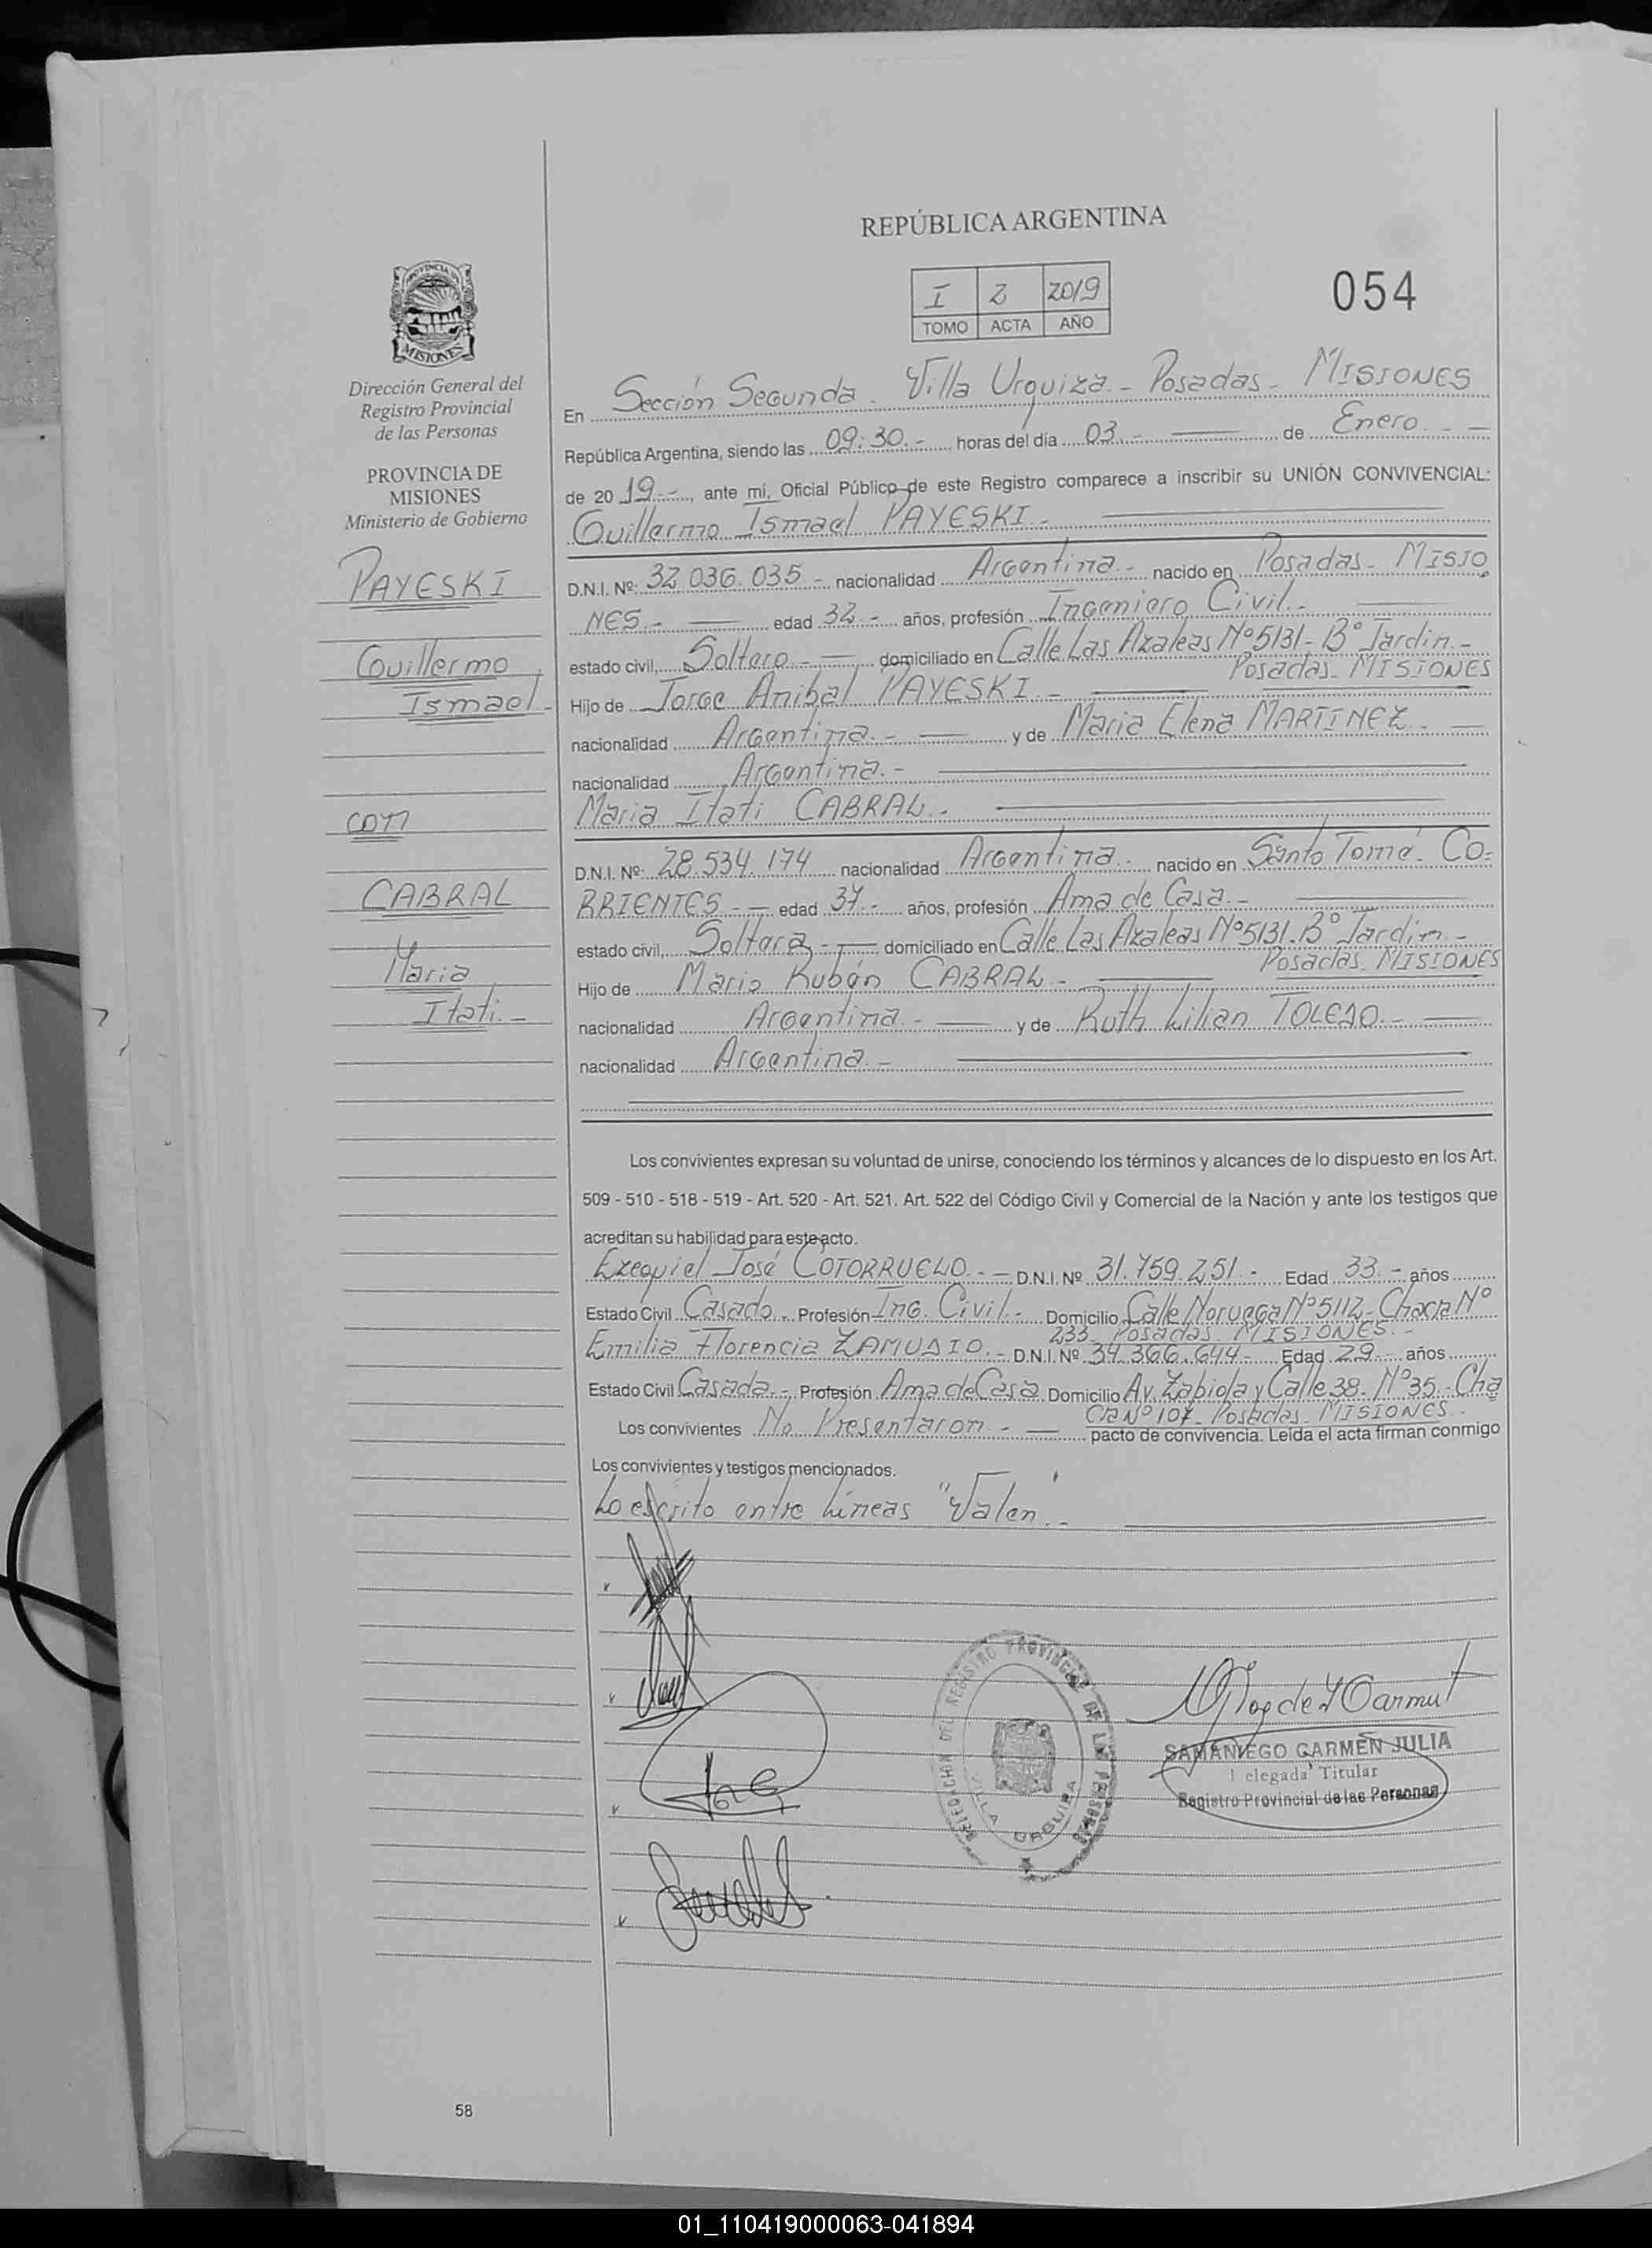 REPÚBLICA ARGENTINA
I 2 2019
TOMO ACTA AÑO
054
PROVINCIA DE
MISIONES
Dirección General del
Registro Provincial
de las Personas
PROVINCIA DE
MISIONES
Ministerio de Gobierno
PAYESKI
Guillermo
Ismael.-
con
CABRAL
Maria
Itati.-
En Sección Segunda. Villa Urquiza.- Posadas.- MISIONES
República Argentina, siendo las 09:30.- horas del día 03.- de Enero.-
de 2019.-, ante mí, Oficial Público de este Registro comparece a inscribir su UNIÓN CONVIVENCIAL:
Guillermo Ismael PAYESKI.-
D.N.I. Nº: 32.036.035.- nacionalidad Argentina.- nacido en Posadas- MISIO
NES.- edad 32.- años, profesión Ingeniero Civil.-
estado civil, Soltero.- domiciliado en Calle Las Azaleas Nº5131- Bº Jardin.-
Posadas- MISIONES
Hijo de Jorge Anibal PAYESKI.-
nacionalidad Argentina.- y de Maria Elena MARTINEZ.-
nacionalidad Argentina.-
Maria Itati CABRAL.-
D.N.I. Nº: 28.534.174 nacionalidad Argentina.- nacido en Santo Tomé- CO-
RRIENTES.- edad 37.- años, profesión Ama de Casa.-
estado civil, Soltera.- domiciliado en Calle Las Azaleas Nº5131.Bº Jardin.-
Posadas. MISIONES
Hijo de Mario Rubén CABRAL.-
nacionalidad Argentina.- y de Ruth Lilian TOLEDO.-
nacionalidad Argentina.-
Los convivientes expresan su voluntad de unirse, conociendo los términos y alcances de lo dispuesto en los Art.
509 - 510 - 518 - 519 - Art. 520 - Art. 521. Art. 522 del Código Civil y Comercial de la Nación y ante los testigos que
acreditan su habilidad para este acto.
Ezequiel José COTORRUELO.- D.N.I. Nº 31.759.251.- Edad 33.- años
Estado Civil Casado.- Profesión Ing. Civil.- Domicilio Calle Noruega Nº5112- Chacra Nº
233- Posadas- MISIONES.-
Emilia Florencia ZAMUDIO.- D.N.I. Nº 34.366.644- Edad 29.- años
Estado Civil Casada.- Profesión Ama de Casa. Domicilio Av. Zabiola y Calle 38- Nº35- Cha
cra Nº 107- Posadas- MISIONES.-
Los convivientes No Presentaron.- pacto de convivencia. Leída el acta firman conmigo
Los convivientes y testigos mencionados.
Lo escrito entre Lineas "Valen".-
DELEGACION DEL REGISTRO PROVINCIAL DE LAS PERSONAS
VILLA URQUIZA
SAMANIEGO CARMEN JULIA
Delegada Titular
Registro Provincial de las Personas
58
01_110419000063-041894